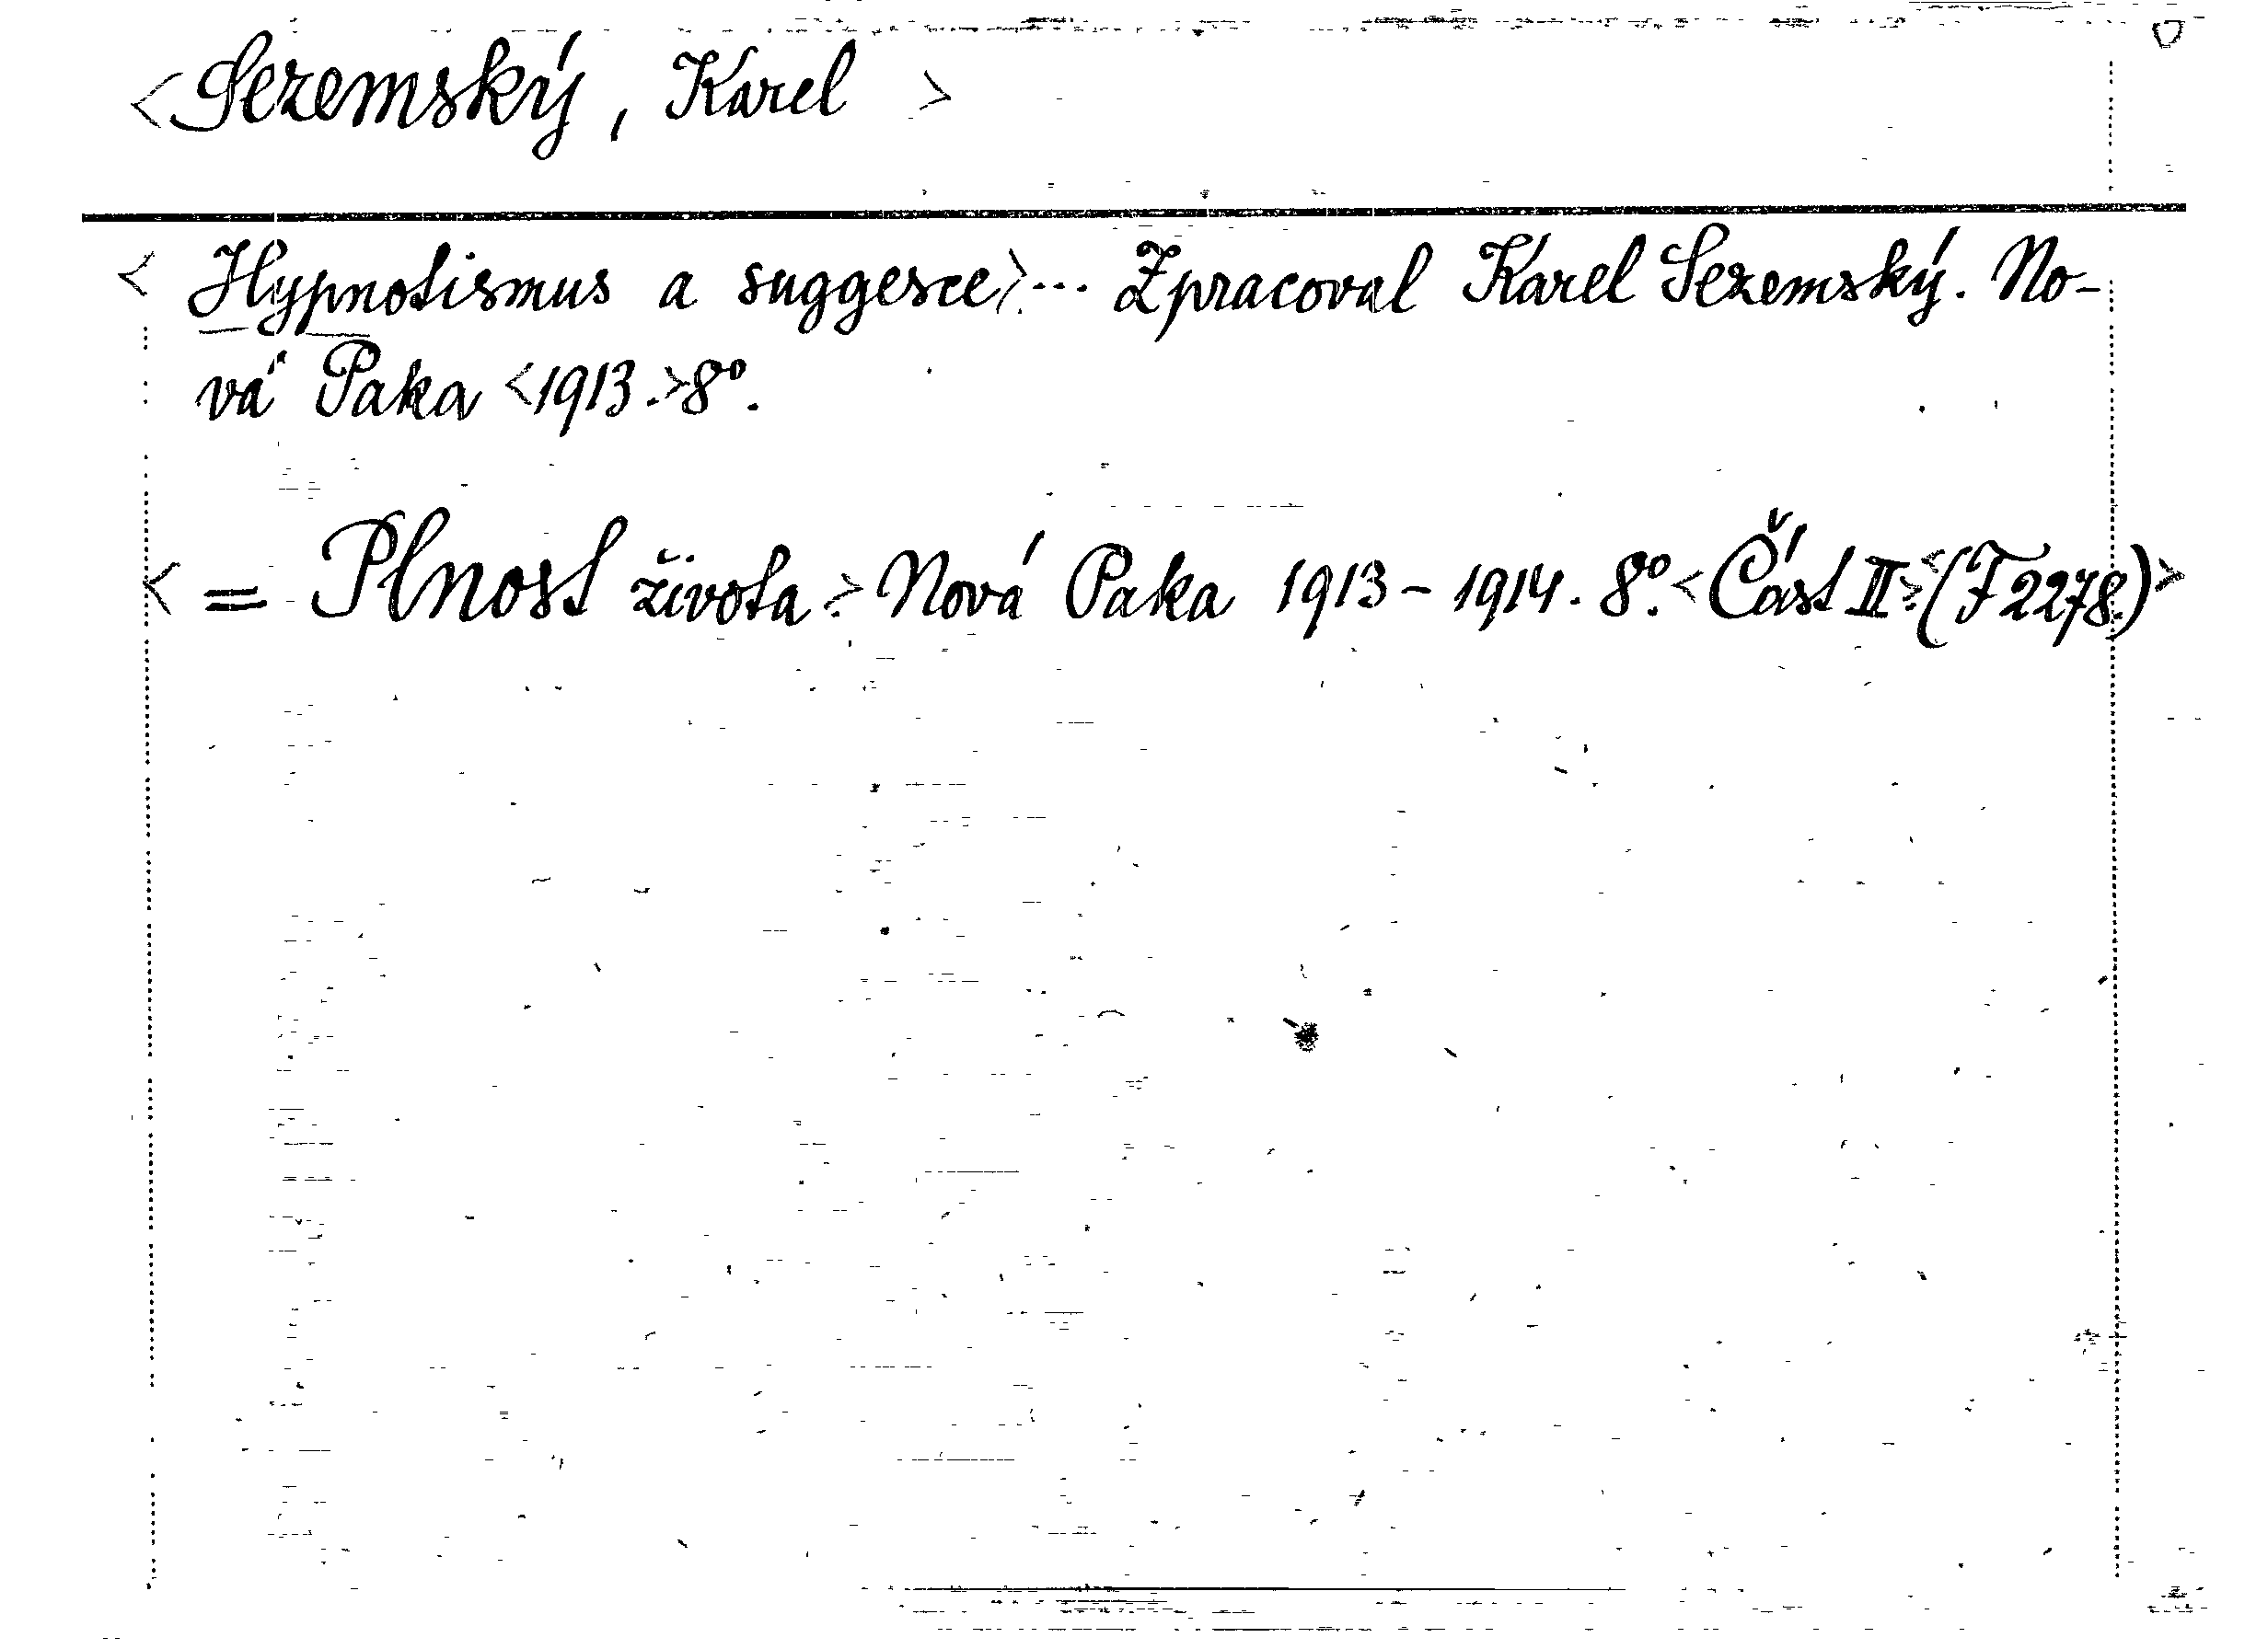 <Sezemský, Karel >
< Hypnotismus a suggesce>... Zpracoval Karel Sezemský. No-
vá Paka <1913.>8°.
< = Plnost života.> Nová Paka 1913-1914. 8°.<Část II.><(F 2278.)>